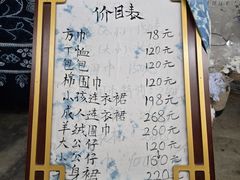 价目表
方巾 78元
丁恤 120元
包包 120元
棉围巾 120元
小孩连衣裙 198元
成人连衣裙 268元
羊绒围巾 260元
大公仔 160元
小公仔 120元
身裙 220